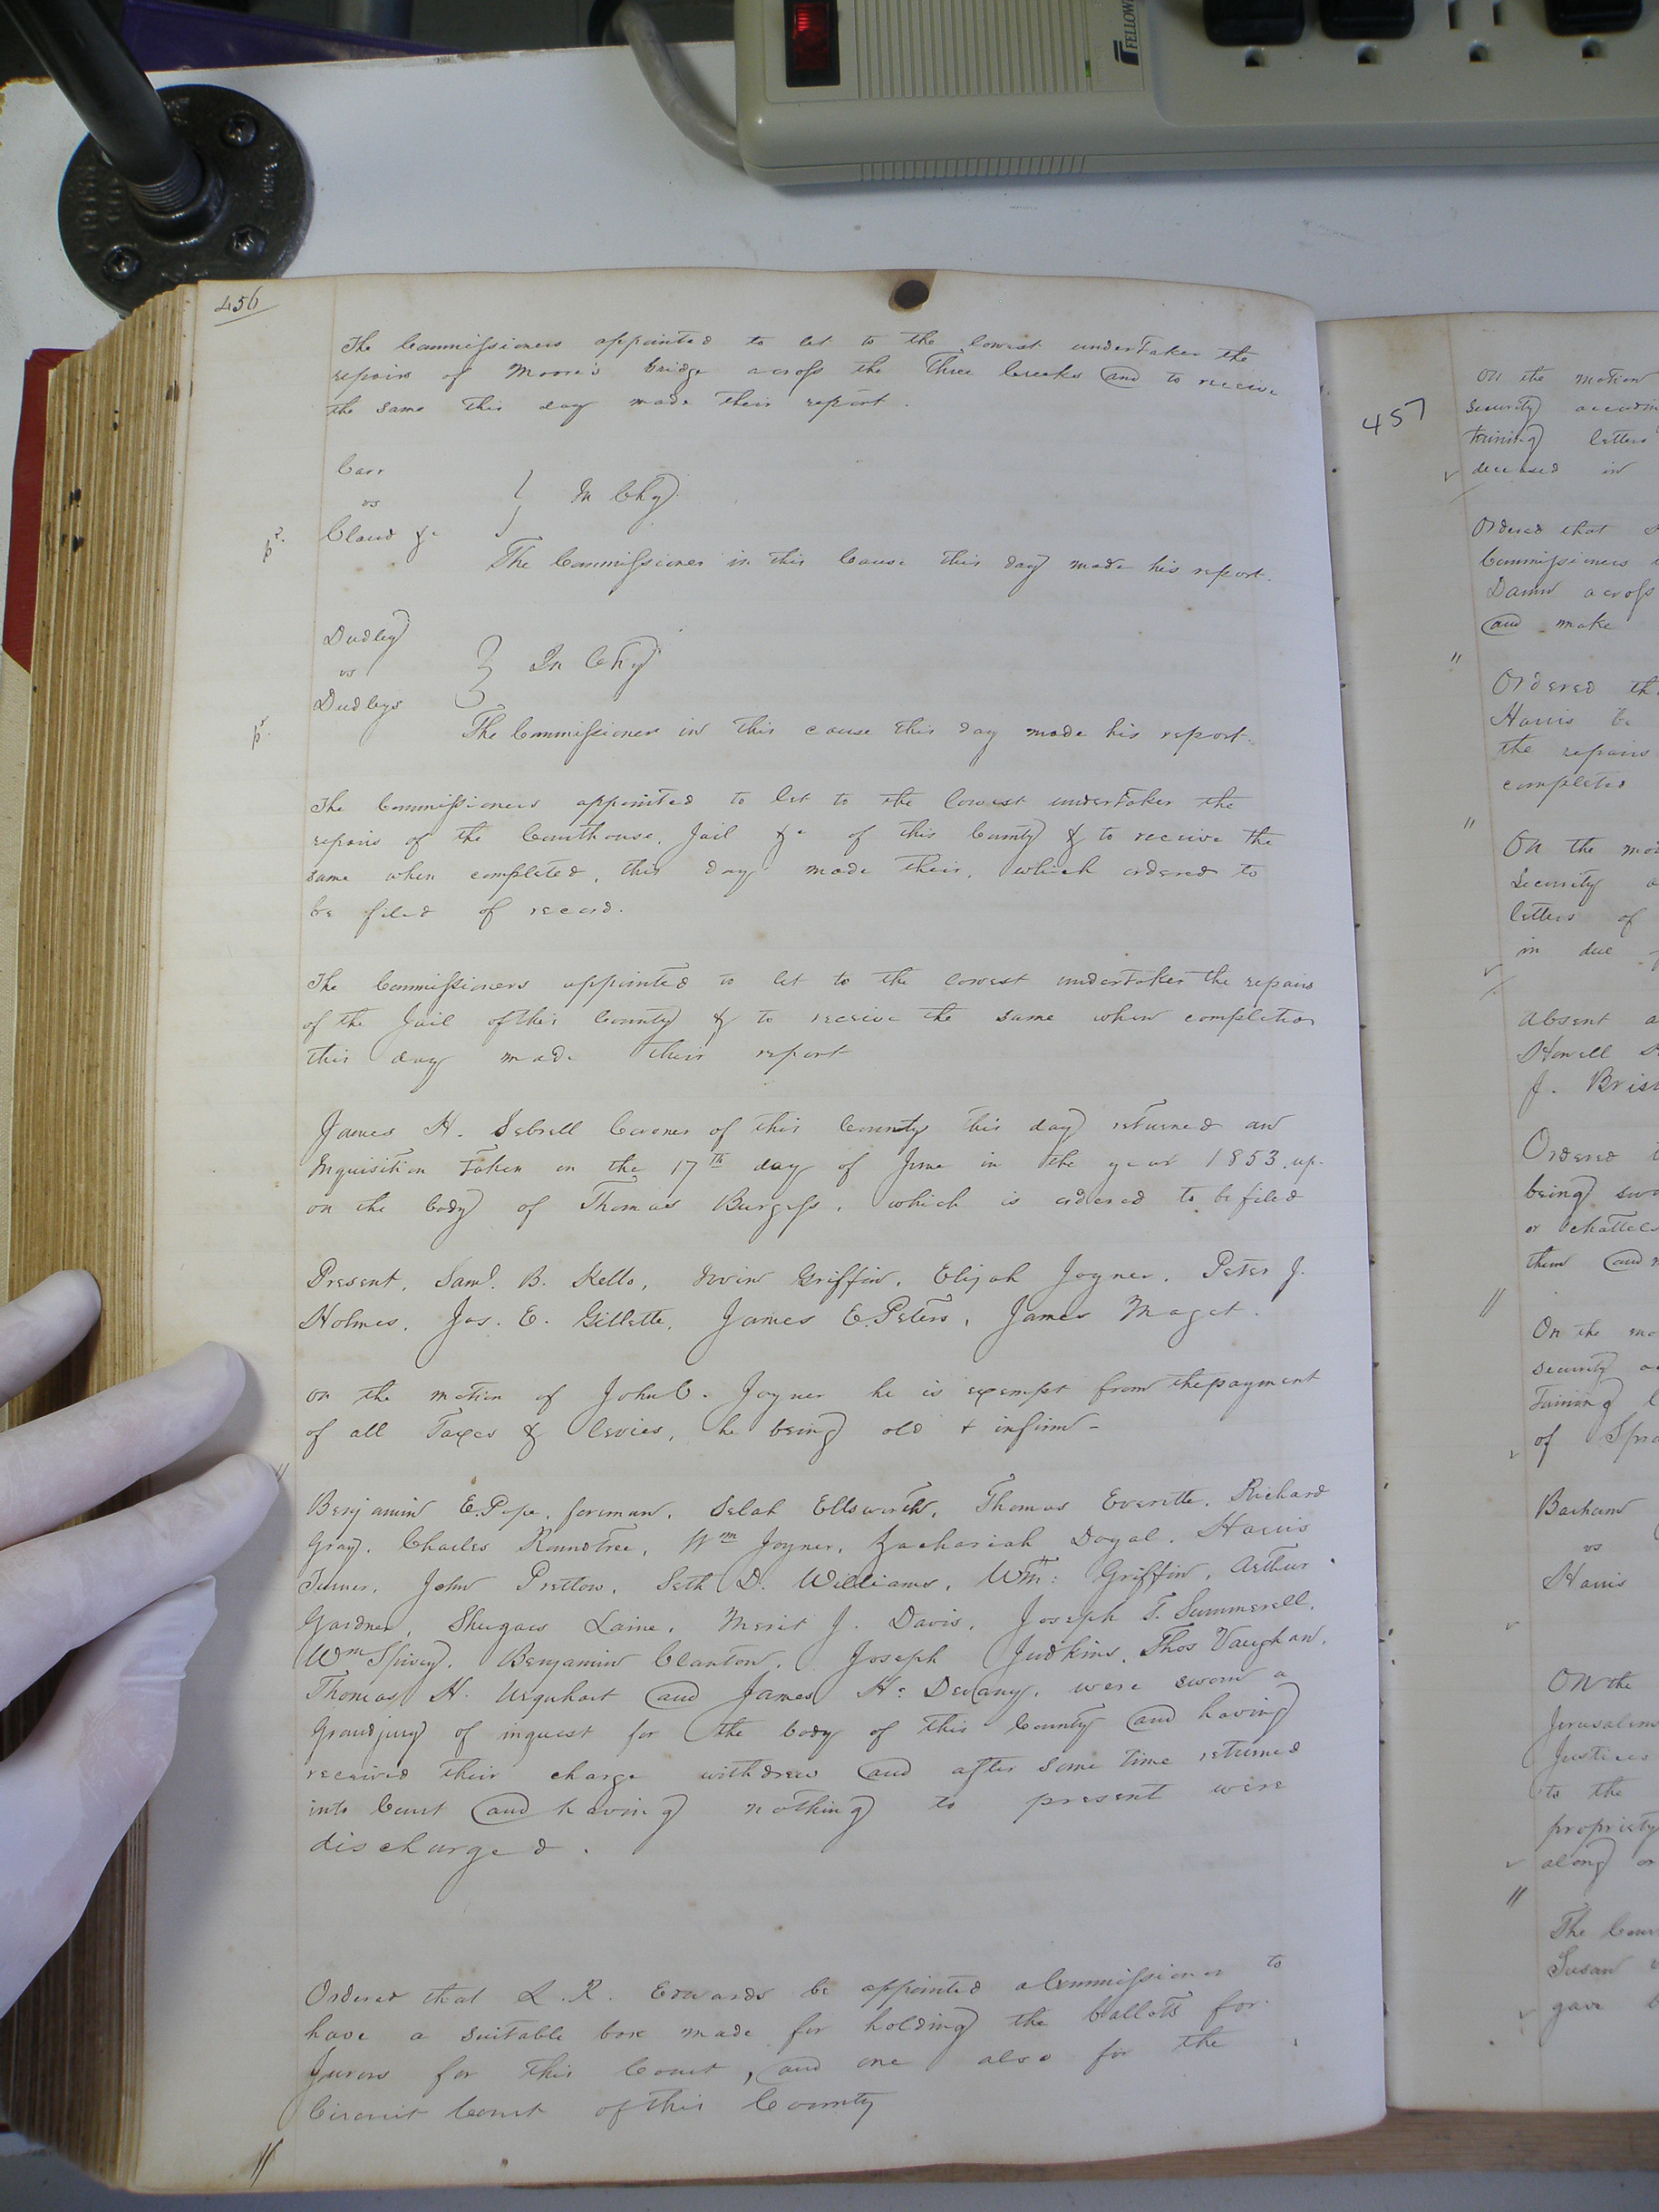 FELLOW
456
The Commissioners appointed to let to the lowest undertaker the
repairs of Moore's bridge across the Three Creeks and to receive
the same this day made their report.
Carr
vs
Claud &c
In Chy.
The Commissioner in this Cause this day made his report.
Dudley
vs
Dudleys
In Chy
The Commissioner in this cause this day made his report.
The Commissioners appointed to let to the lowest undertaker the
repairs of the Courthouse, Jail &c of this County & to receive the
same when completed, this day made their, which ordered to
be filed of record.
The Commissioners appointed to let to the lowest undertaker the repairs
of the Jail of this County & to receive the same when completion
this day made their report
James H. Sebrell Coroner of this County this day returned an
Inquisition taken on the 17th day of June in the year 1853 up-
on the body of Thomas Burgess, which is ordered to be filed
Present, Saml. B. Kello, Irvin Griffin, Elijah Joyner, Peter J.
Holmes, Jas. E. Gillette, James E. Peters, James Maget.
On the motion of John C. Joyner he is exempt from the payment
of all Taxes & levies, he being old + infirm -
Benjamin E. Pope, foreman, Selah Ellsworth, Thomas Everette, Richard
Gray, Charles Roundtree, Wm Joyner, Zachariah Doyal, Harris
Turner, John Pretlow, Seth D. Williams, Wm: Griffin, Arthur
Gardner, Shugars Laine, Merit J. Davis, Joseph T. Summerell,
Wm Spivey, Benjamin Clanton, Joseph Judkins, Thos Vaughan,
Thomas H. Urquhart and James H. Delany, were sworn a
Grandjury of inquest for the body of this County and having
received their charge withdrew and after some time returned
into Court and having nothing to present were
discharged.
Ordered that L. R. Edwards be appointed a Commissioner to
have a suitable box made for holding the ballots for
Jurors for this Court, and one also for the
Circuit Court of this County
457
On the motion
Security
letters
deceased in
Ordered that
Commissioners
Damn across
and make
Ordered th
Harris be
the repairs
completed
On the mo
Security a
letters of
in due
Absent a
Howell
J. Bris
Ordered t
being swo
or chattels
them and
On the mo
security a
of Spra
Barham
vs
Harris
On the
Jerusalem
Justices
to the
propriety
along or
The Cour
Susan
gave b